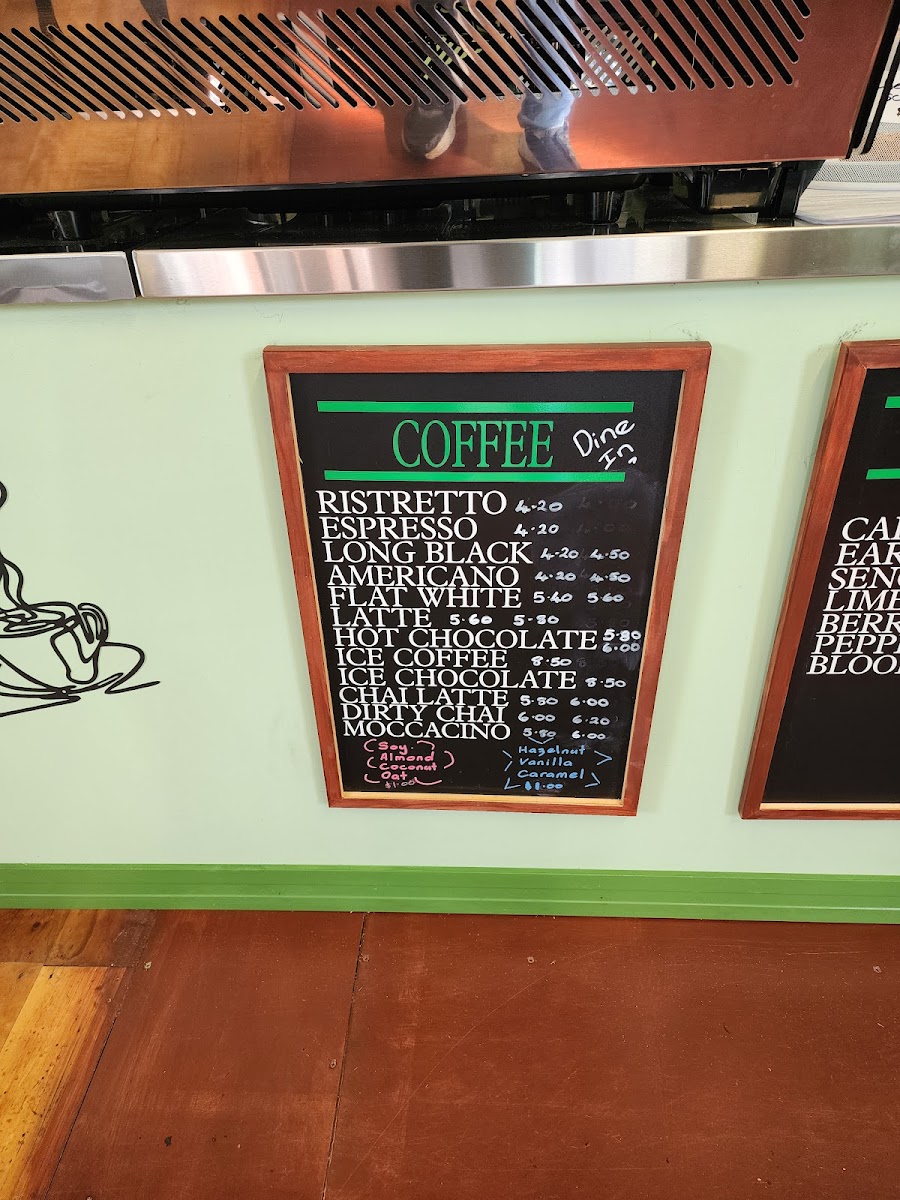 COFFEE Dine In
RISTRETTO 4.20
ESPRESSO 4.20
LONG BLACK 4.20 4.50
AMERICANO 4.20 4.50
FLAT WHITE 5.40 5.60
LATTE 5.60 5.80
HOT CHOCOLATE 5.80 6.00
ICE COFFEE 8.50
ICE CHOCOLATE 8.50
CHAI LATTE 5.80 6.00
DIRTY CHAI 6.00 6.20
MOCCACINO 5.80 6.00
Soy
Almond
Coconut
Oat
$1.00
Hazelnut
Vanilla
Caramel
$1.00
CA
EAR
SENC
LIME
BERR
PEPP
BLOO